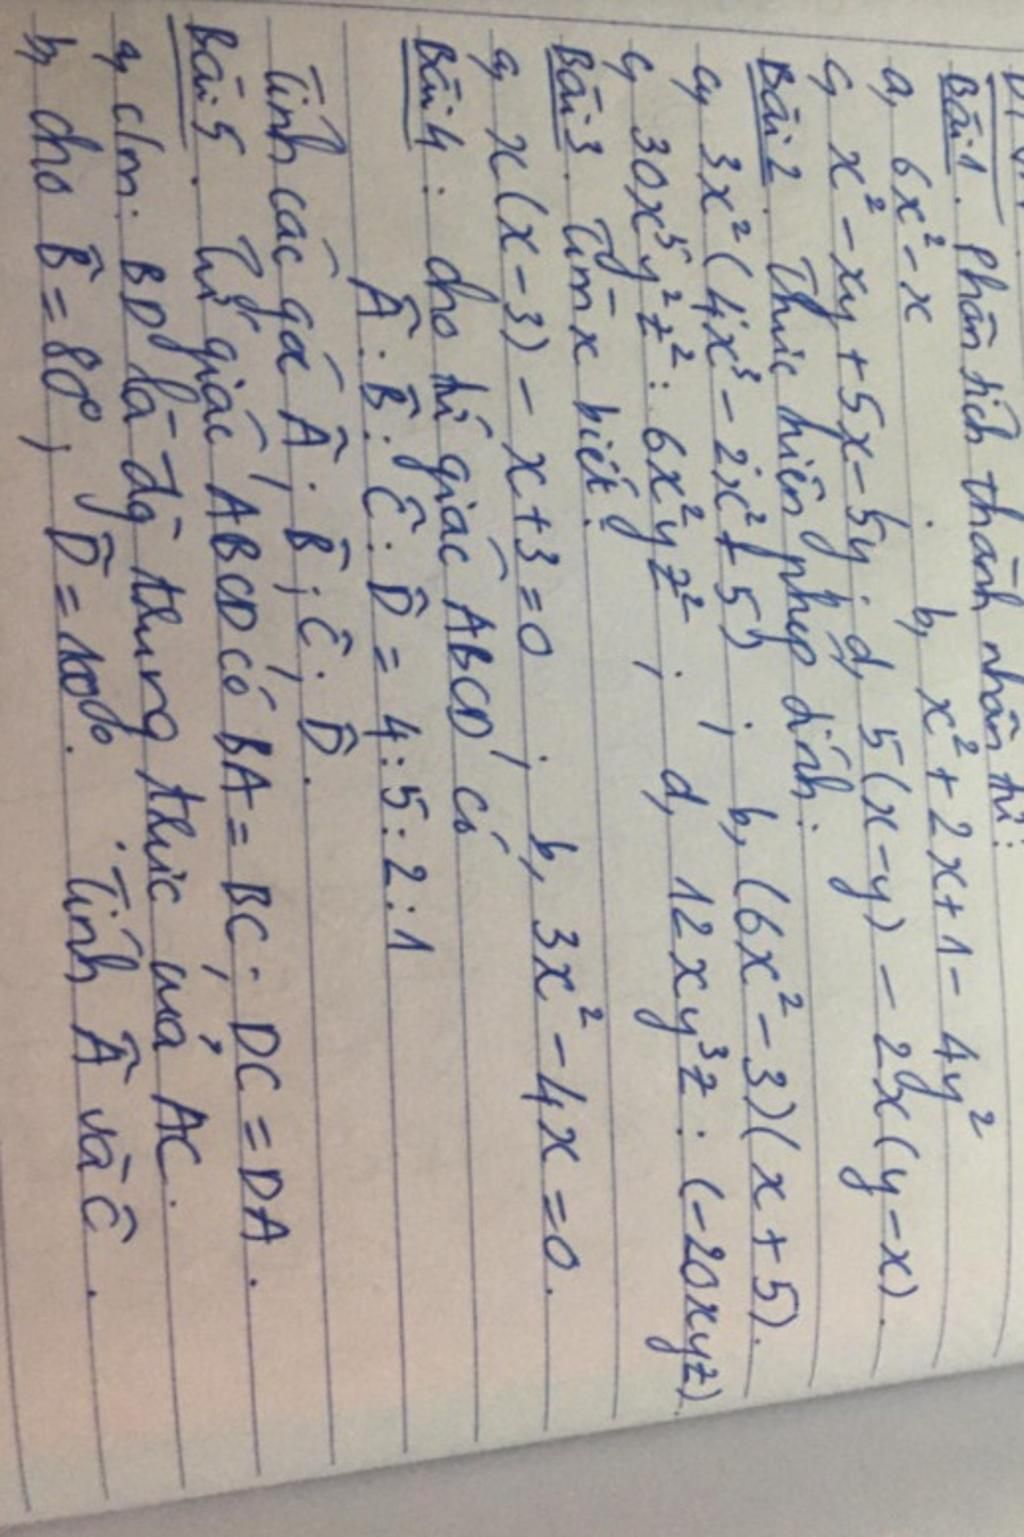 Bài 1. Phân tích thành nhân tử:
a, 6x² - x . b, x² + 2x + 1 - 4y²
c, x² - xy + 5x - 5y ; d, 5(x - y) - 2x(y - x).
Bài 2. Thực hiện phép tính:
a, 3x²(4x³ - 2x² + 5) ; b, (6x² - 3)(x + 5).
c, 30x⁵y²z² : 6x²yz² ; d, 12xy³z : (-20xyz)
Bài 3. Tìm x biết:
a, x(x - 3) - x + 3 = 0 ; b, 3x² - 4x = 0.
Bài 4: Cho tứ giác ABCD có
Â : B̂ : Ĉ : D̂ = 4 : 5 : 2 : 1
Tính các góc Â ; B̂ ; Ĉ ; D̂.
Bài 5. Tứ giác ABCD có BA = BC ; DC = DA.
a, c/m: BD là đg trung trực của AC.
b, cho B̂ = 80°, D̂ = 100°. Tính Â và Ĉ.